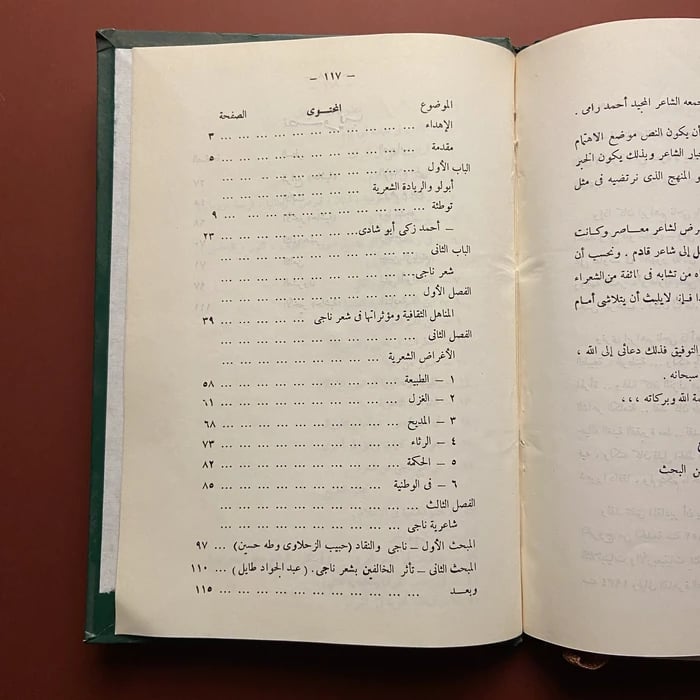 جمعه الشاعر المجيد أحمد رامى .
أن يكون النص موضع الاهتمام
الشاعر وبذلك يكون الخبر
و المنهج الذى نرتضيه فى مثل
لشاعر معاصر وكانت
إلى شاعر قادم . ونحسب أن
من تشابه فى الشعراء
فإن لا يلبث أن يتلاشى أمام
التوفيق فذلك دعائى إلى الله ،
سبحانه .
الله وبركاته ،،،
البحث
– ١١٧ –
الموضوع المحتوى الصفحة
الإهداء ... ٣
مقدمة ... ٥
الباب الأول ...
أبولو والريادة الشعرية ...
توطئة ... ٩
– أحمد زكى أبو شادى... ٢٣
الباب الثانى ...
شعر ناجى...
الفصل الأول ...
المناهل الثقافية ومؤثراتها فى شعر ناجى ... ٣٩
الفصل الثانى ...
الأغراض الشعرية ...
١ – الطبيعة ... ٥٨
٢ – الغزل ... ٦١
٣ – المديح ... ٦٨
٤ – الرثاء ... ٧٣
٥ – الحكمة ... ٨٢
٦ – فى الوطنية ... ٨٥
الفصل الثالث ...
شاعرية ناجى ...
المبحث الأول – ناجى والنقاد (حبيب الزحلاوى وطه حسين) ... ٩٧
المبحث الثانى – تأثر الخالفين بشعر ناجى. (عبد الجواد طايل) ... ١١٠
وبعد ... ١١٥